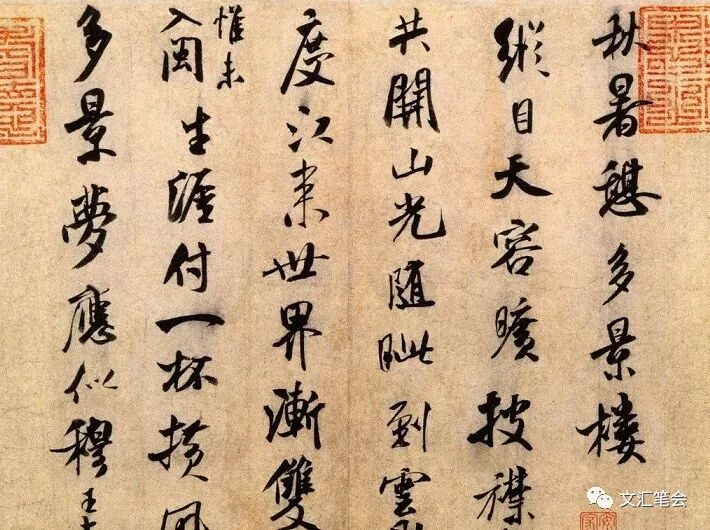 秋暑憩多景樓
縱目天容曠披襟
共開山光隨眦到雲
度江来世界漸雙
惟未
入閩生涯付一杯横
多景夢應似穆王
文汇笔会